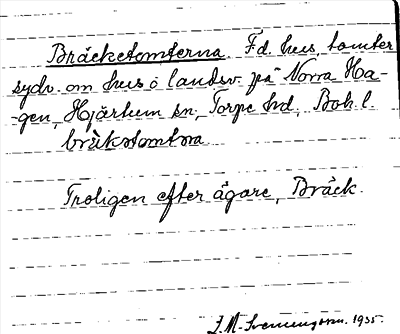 Bräcketomterna. F.d. hus, tomter
sydv. om hus o landsv. på Norra Ha-
-gen, Hjärtum sn, Torpe hd, Boh. l.
bräketomtna
Troligen efter ägare, Bräck.
1935.